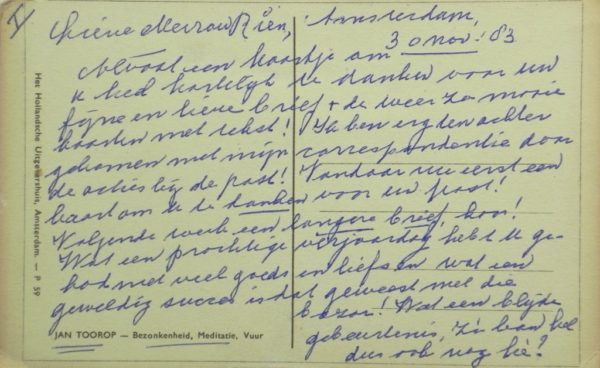 Lieve Mevrouw Riën, Amsterdam,
Alvast een kaartje om 30 nov. '83
u heel hartelijk te danken voor uw
fijne en lieve brief + de weer zo mooie
kaarten met tekst! Ik ben erg ten achter
gekomen met mijn correspondentie door
de acties bij de post! Vandaar nu eerst een
kaart om u te danken voor uw post!
Volgende week een langere brief, hoor!
Wat een prachtige verjaardag hebt U ge-
had met veel goeds en liefs en wat een
geweldig succes is dat geweest met die
bazar! Wat een blijde
gebeurtenis, Zo kan het
dus ook nog hè?
JAN TOOROP — Bezonkenheid, Meditatie, Vuur
Het Hollandsche Uitgevershuis, Amsterdam. — P 59